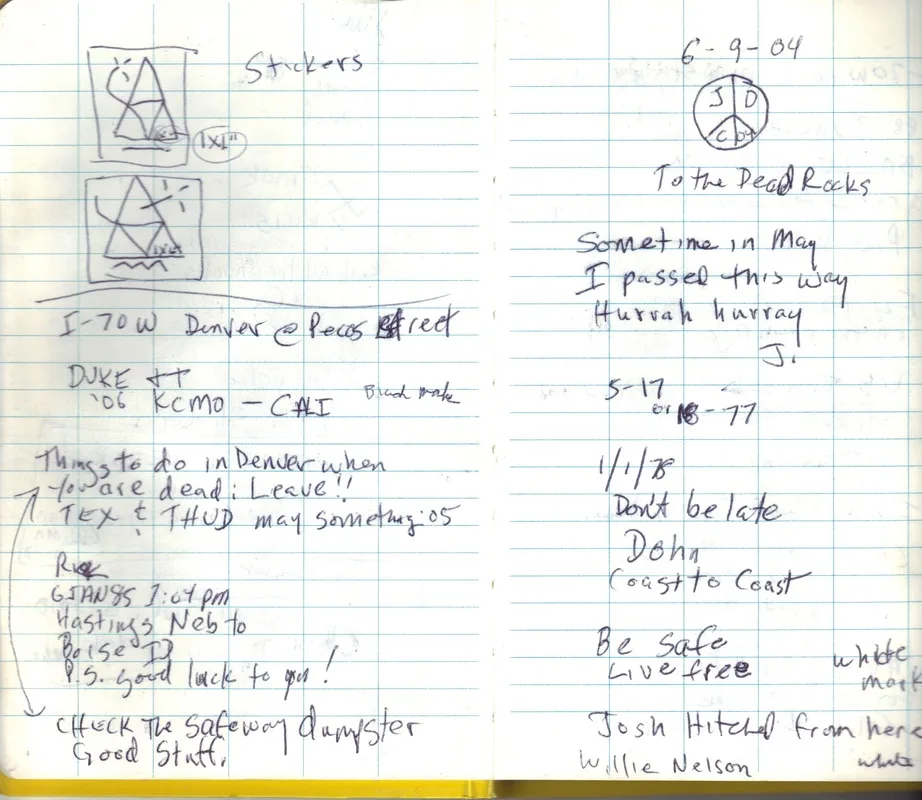 Stickers
1x1"
I-70W Denver @ Pecos Street
DUKE ++
'06 KCMO – CAI
Black mark
Things to do in Denver when
You are dead: Leave!!
TEX & THUD may something 05
Rick
6JAN85 1:04pm
Hastings Neb to
Boise ID
P.S. good luck to you!
CHECK The Safeway dumpster
Good Stuff.
6-9-04
J D
C 04
To the Dead Rocks
Sometime in May
I passed this way
Hurrah hurray
J.
5-17
or 18-77
1/1/78
Don't be late
Dohn
Coast to Coast
Be safe
Live free
white
mark
Josh Hitched from here
Willie Nelson
white